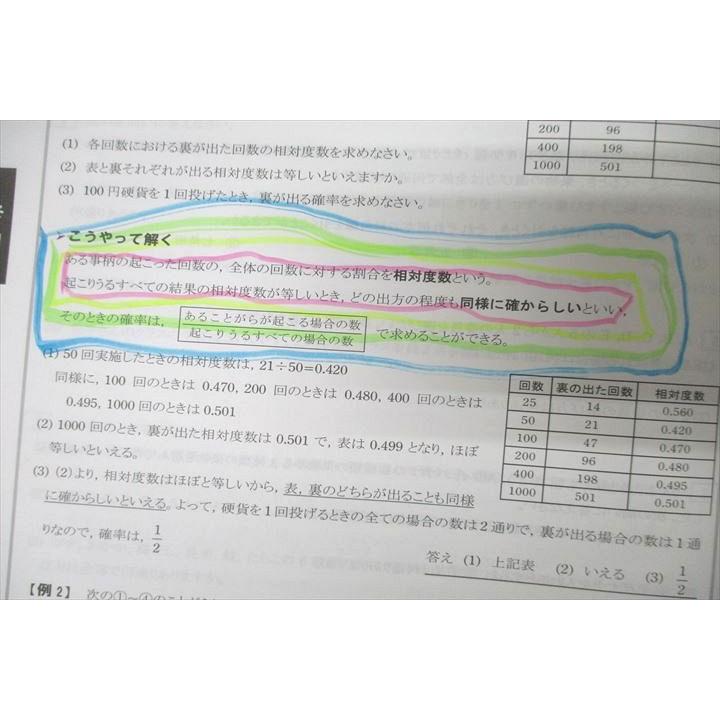 200 96
400 198
1000 501
(1) 各回数における裏が出た回数の相対度数を求めなさい。
(2) 表と裏それぞれが出る相対度数は等しいといえますか。
(3) 100円硬貨を1回投げたとき,裏が出る確率を求めなさい。
こうやって解く
ある事柄の起こった回数の,全体の回数に対する割合を相対度数という。
起こりうるすべての結果の相対度数が等しいとき,どの出方の程度も同様に確からしいといい,
そのときの確率は, あることがらが起こる場合の数/起こりうるすべての場合の数 で求めることができる。
(1) 50回実施したときの相対度数は,21÷50=0.420
同様に,100回のときは 0.470,200回のときは 0.480,400回のときは
0.495,1000回のときは 0.501
(2) 1000回のとき,裏が出た相対度数は 0.501 で,表は 0.499 となり,ほぼ
等しいといえる。
回数 裏の出た回数 相対度数
25 14 0.560
50 21 0.420
100 47 0.470
200 96 0.480
400 198 0.495
1000 501 0.501
(3) (2)より,相対度数はほぼと等しいから,表,裏のどちらが出ることも同様
に確からしいといえる。よって,硬貨を1回投げるときの全ての場合の数は2通りで,裏が出る場合の数は1通
りなので,確率は,1/2
答え (1) 上記表 (2) いえる (3) 1/2
【例2】 次の①~④のことが